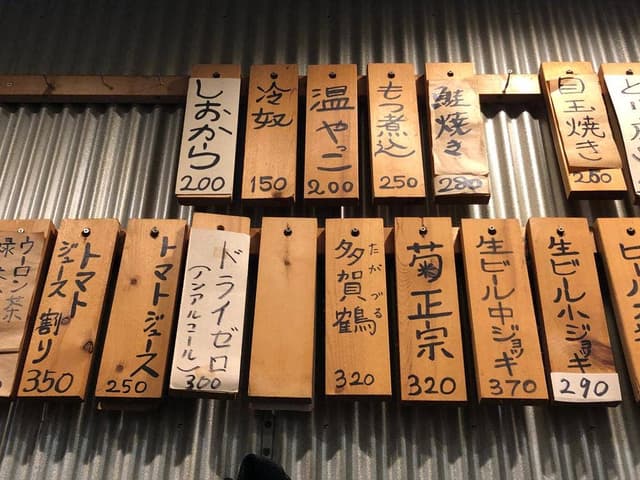 しおから
200
冷奴
150
温やっこ
200
もつ煮込
250
鮭焼き
280
目玉焼き
260
ウーロン茶
緑茶
トマト
ジュース割り
350
トマトジュース
250
ドライゼロ
(ノンアルコール)
300
多賀鶴
たかづる
320
菊正宗
320
生ビール中ジョッキ
370
生ビール小ジョッキ
290